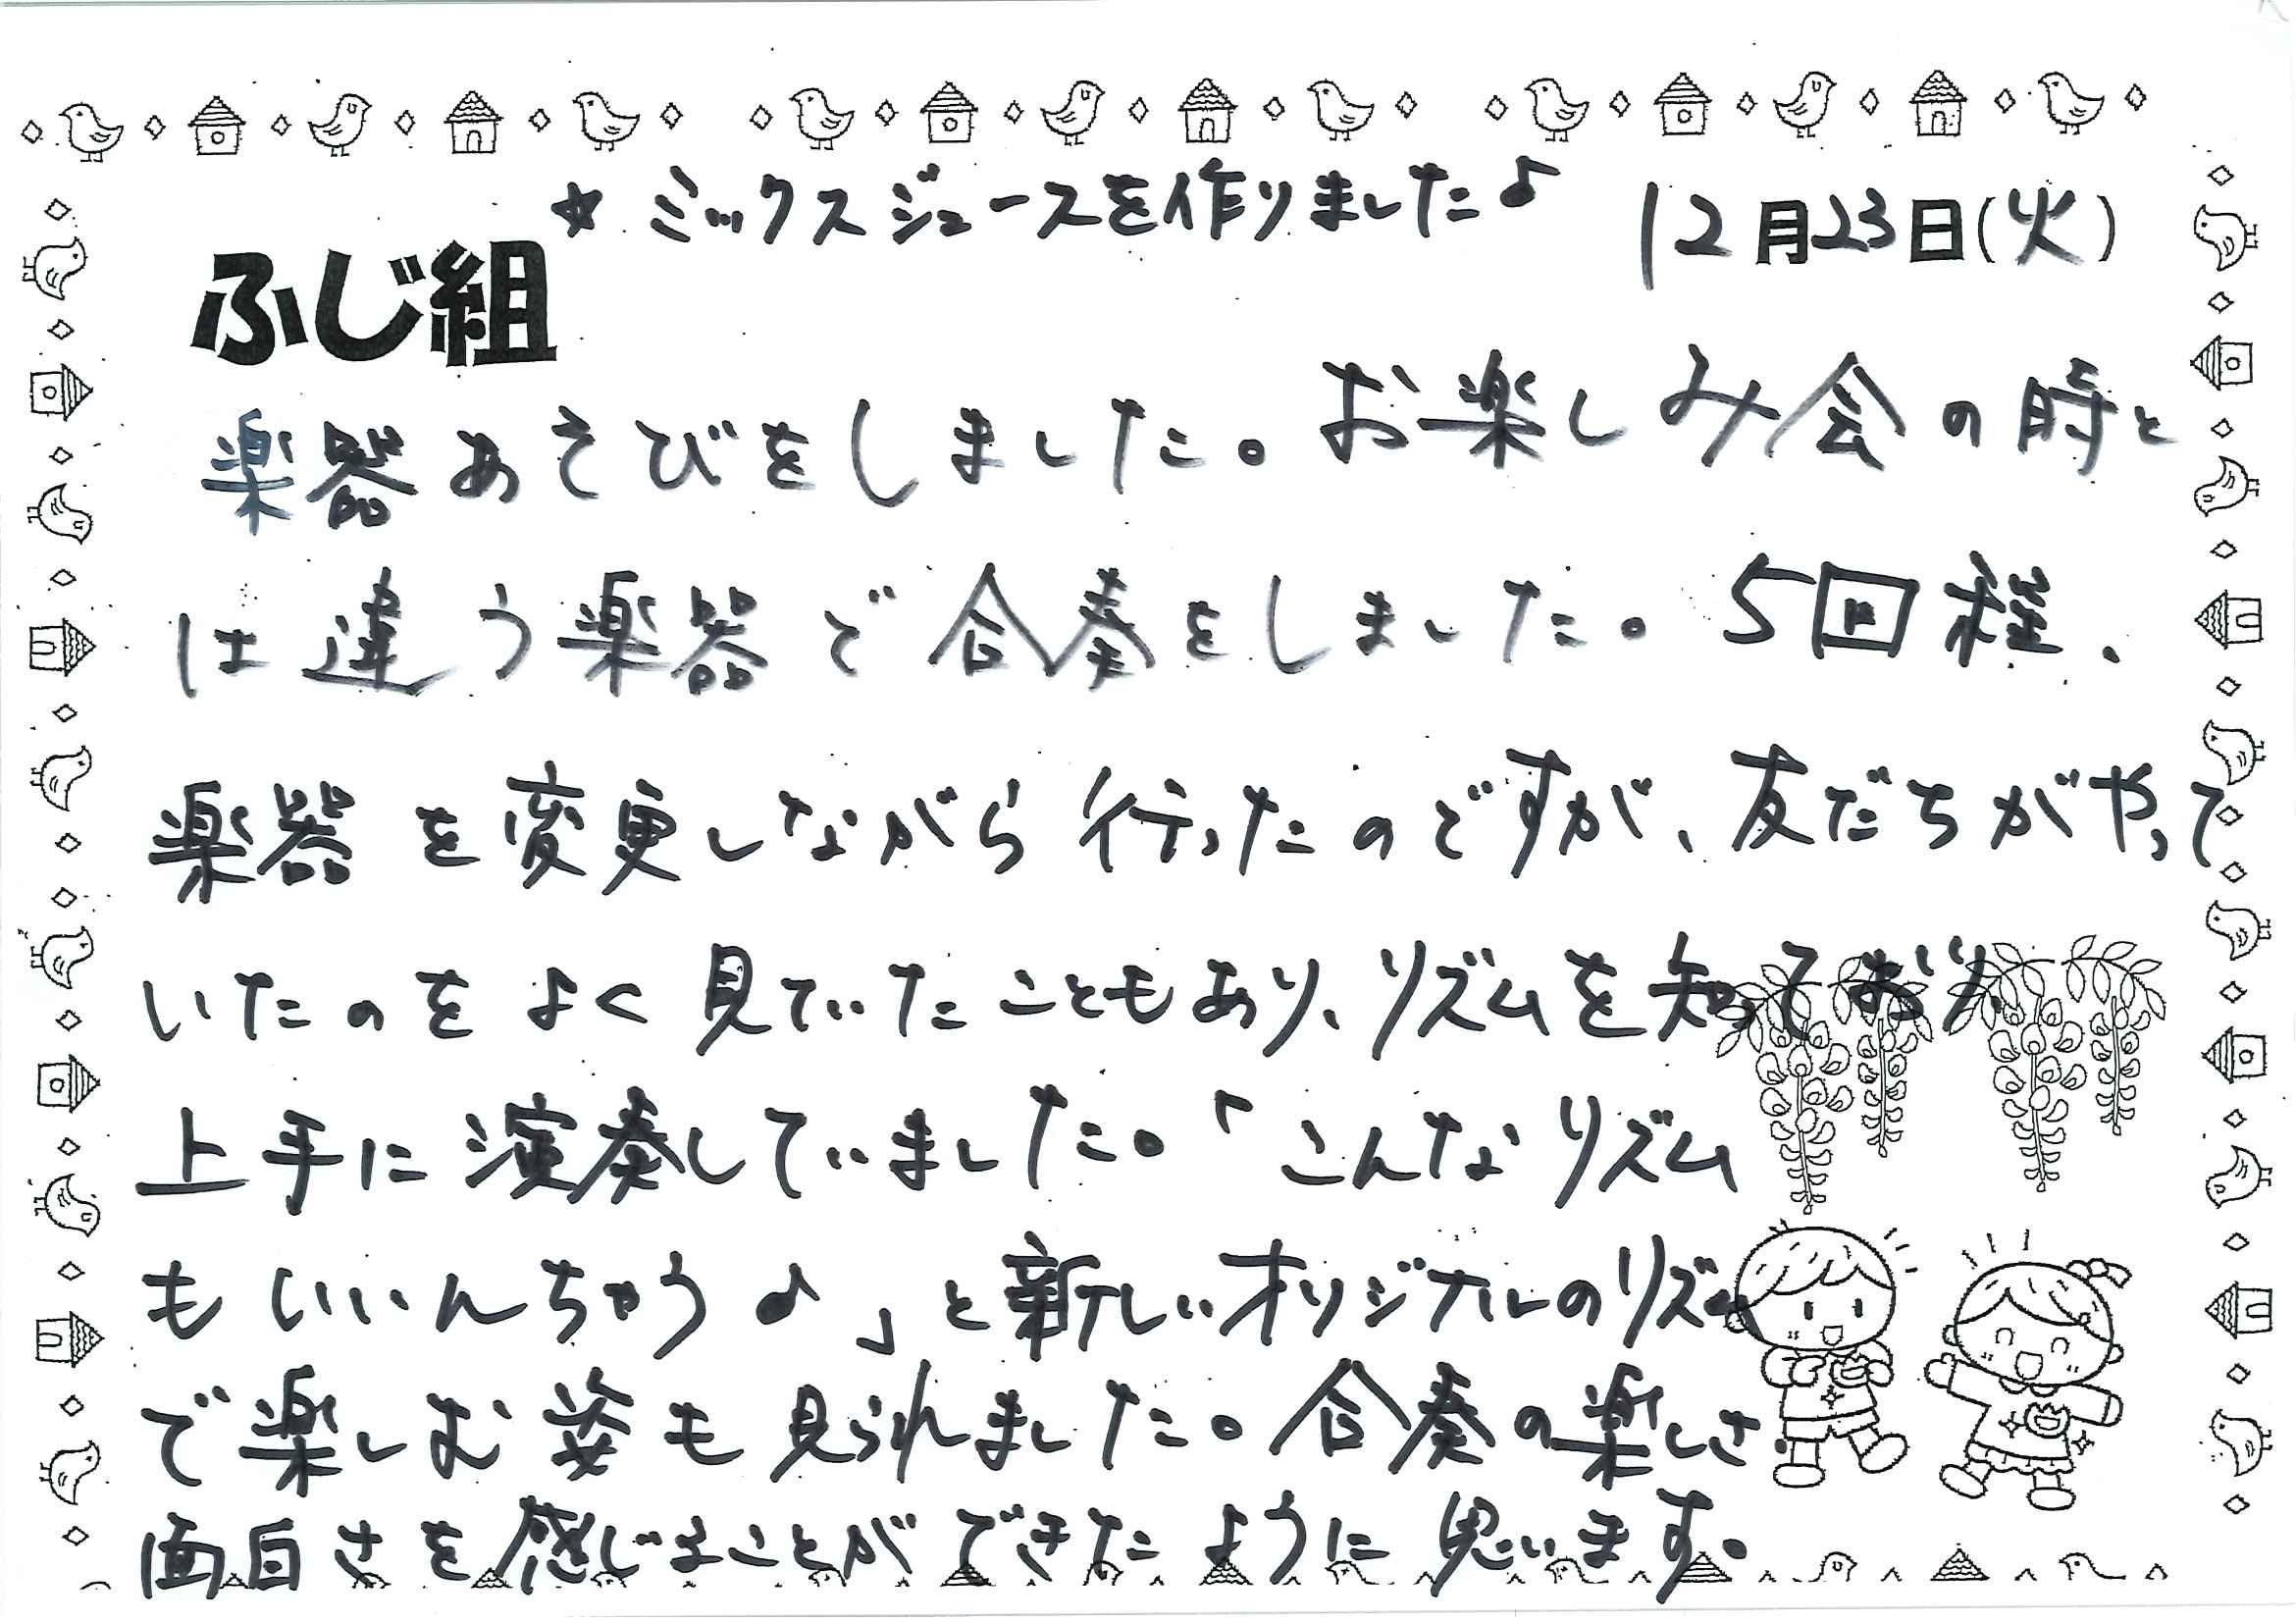 ☆ ミックスジュースを作りました♪
12月23日(火)
ふじ組
楽器あそびをしました。お楽しみ会の時と
は違う楽器で合奏をしました。5回程、
楽器を変更しながら行ったのですが、友だちがやって
いたのをよく見ていたこともあり、リズムを知っており、
上手に演奏していました。「こんなリズム
もいいんちゃう♪」と新しいオリジナルのリズム
で楽しむ姿も見られました。合奏の楽しさ、
面白さを感じることができたように思います。